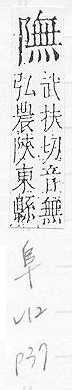 武扶切音無
弘農陝東縣
阜
V12
P37